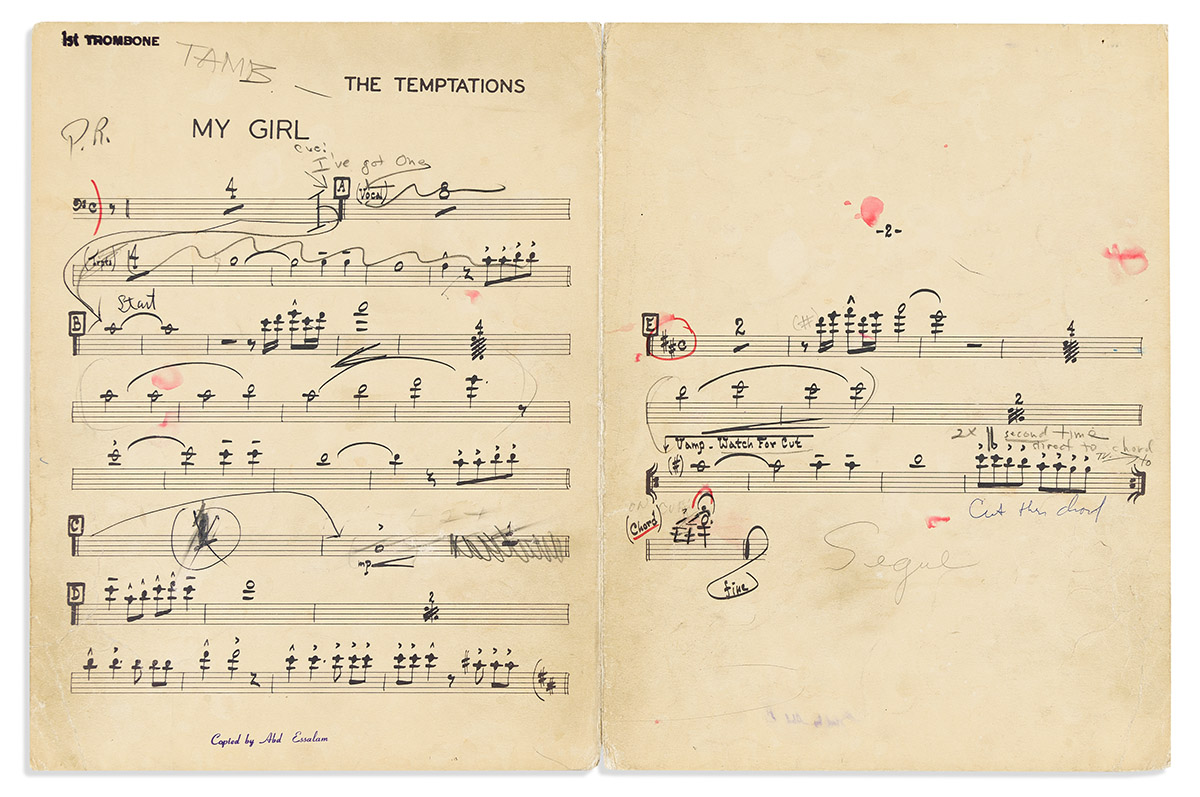 1st TROMBONE
TAMB.
THE TEMPTATIONS
P.R.
MY GIRL
cue:
I've got One
4
A
(Vocal)
8
4
B
Start
4
C
mp
D
2
Copied by Abd Essalam
-2-
E
2
4
2
Vamp - Watch For Cut
2X
second time
direct to chord
to
Cut this chord
(Chord)
Segue
fine